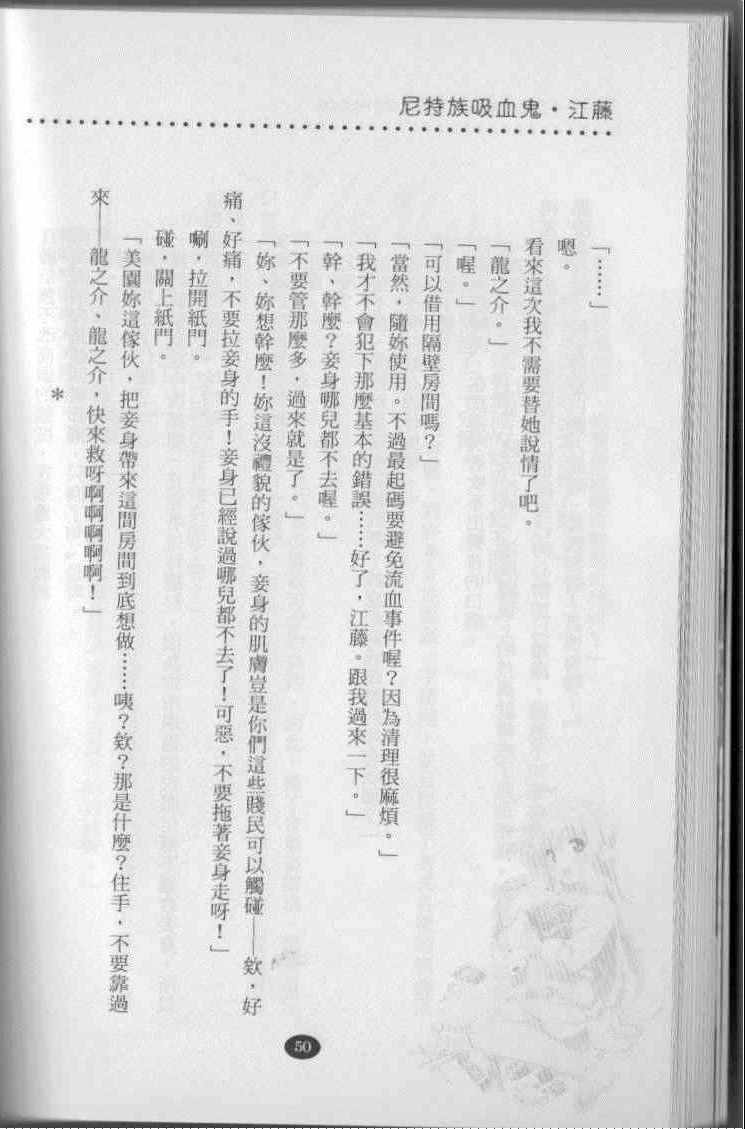 尼特族吸血鬼・江藤
「……」
嗯。
看來這次我不需要替她說情了吧。
「龍之介。」
「喔。」
「可以借用隔壁房間嗎？」
「當然，隨妳使用。不過最起碼要避免流血事件喔？因為清理很麻煩。」
「我才不會犯下那麼基本的錯誤……好了，江藤。跟我過來一下。」
「幹、幹麼？妾身哪兒都不去喔。」
「不要管那麼多，過來就是了。」
「妳、妳想幹麼！妳這沒禮貌的傢伙，妾身的肌膚豈是你們這些賤民可以觸碰——欸，好
痛、好痛，不要拉妾身的手！妾身已經說過哪兒都不去了！可惡，不要拖著妾身走呀！」
唰，拉開紙門。
碰，關上紙門。
「美園妳這傢伙，把妾身帶來這間房間到底想做……咦？欸？那是什麼？住手，不要靠過
來——龍之介、龍之介，快來救呀啊啊啊啊啊！」
＊
50